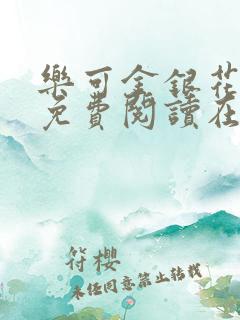 樂可金銀花
免費閱讀在
符櫻
未經同意禁止轉載